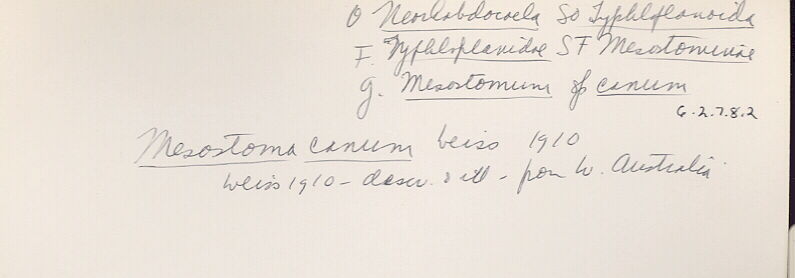 O Neorhabdocoela SO Typhloplanoida
F. Typhloplanidae SF Mesostominae
G. Mesostomum sp canum
6.2.7.8.2
Mesostoma canum Weiss 1910
Weiss 1910 - descr. & ill - from W. Australia